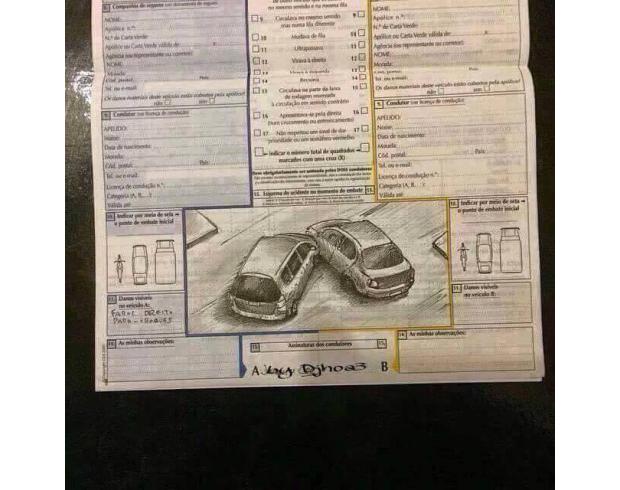 8. Companhia de seguros
NOME:
Apólice n.º:
N.º de Carta Verde
Apólice ou Carta Verde válida de
Agência (ou representante ou corretor)
NOME:
Morada:
Cód. postal: País:
Tel. ou e-mail:
Os danos materiais deste veículo estão cobertos pela apólice?
não sim
9. Condutor (ver licença de condução)
APELIDO:
Nome:
Data de nascimento:
Morada:
Cód. postal: País:
Tel. ou e-mail:
Licença de condução n.º:
Categoria (A, B, ...):
Válida até
10. Indicar por meio de seta
o ponto de embate inicial
11. Danos visíveis
no veículo A:
FAROL DIREITO
PARA-CHOQUES
14. As minhas observações:
no mesmo sentido e na mesma fila
9 Circulava no mesmo sentido 9
mas numa fila diferente
10 Mudava de fila 10
11 Ultrapassava 11
12 Virava à direita 12
13 Virava à esquerda 13
14 Recuava 14
15 Circulava na parte da faixa 15
de rodagem reservada
à circulação em sentido contrário
16 Apresentava-se pela direita 16
(num cruzamento ou entroncamento)
17 Não respeitou um sinal de dar 17
prioridade ou um semáforo vermelho
indicar o número total de quadrados
marcados com uma cruz (X)
Deve obrigatoriamente ser assinado pelos DOIS condutores
13. Esquema do acidente no momento do embate 13.
15. Assinaturas dos condutores 15.
A by Djhoa3 B
Apólice n.º:
N.º de Carta Verde
Apólice ou Carta Verde válida de
Agência (ou representante ou corretor)
NOME:
Morada:
Cód. postal: País:
Tel. ou e-mail:
Os danos materiais deste veículo estão cobertos pela apólice?
não sim
9. Condutor (ver licença de condução)
APELIDO:
Nome:
Data de nascimento:
Morada:
Cód. postal: País:
Tel. ou e-mail:
Licença de condução n.º:
Categoria (A, B, ...):
Válida até
10. Indicar por meio de seta
o ponto de embate inicial
11. Danos visíveis
no veículo B:
14. As minhas observações: